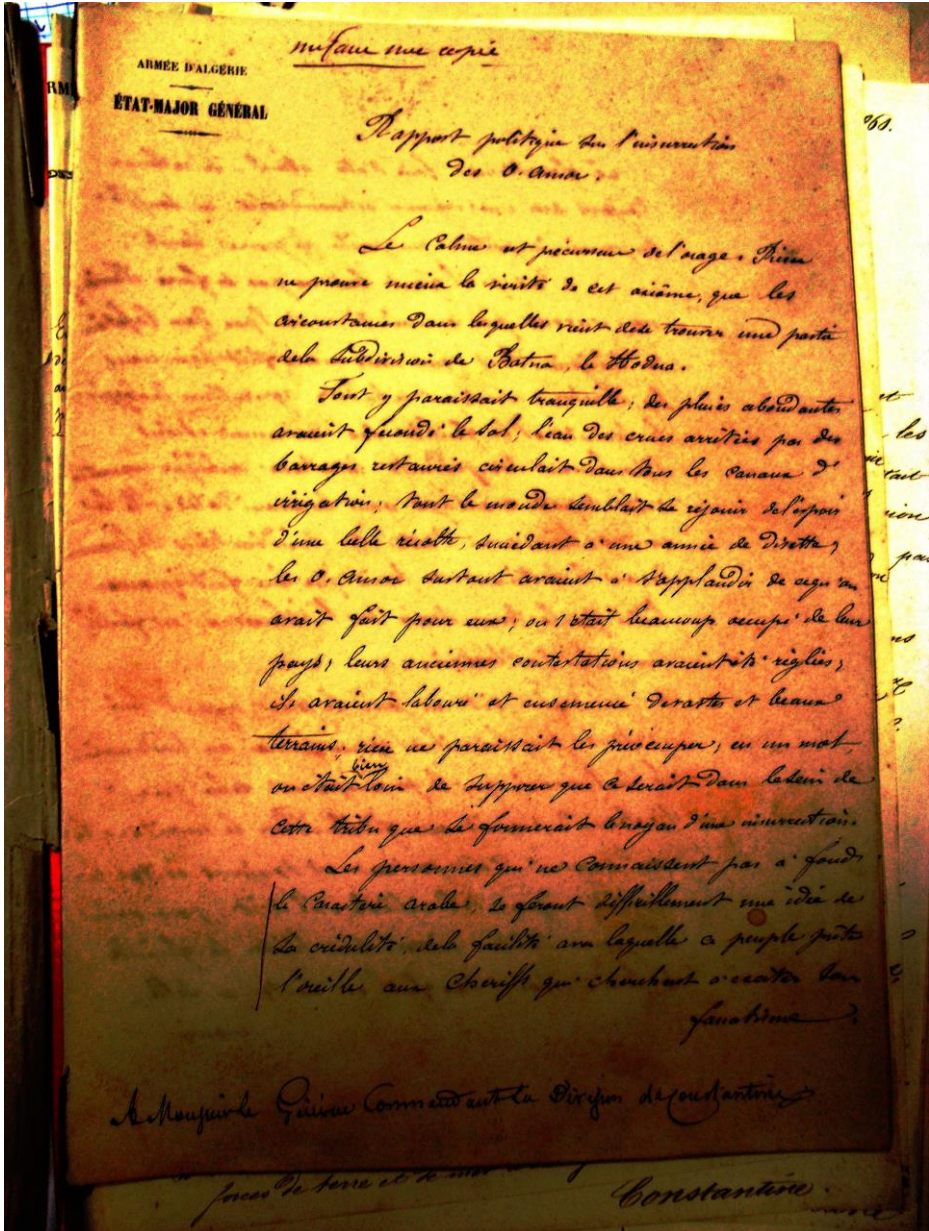 me faire une copie
ARMÉE D'ALGÉRIE
ÉTAT-MAJOR GÉNÉRAL
Rapport politique sur l'insurrection
des O. Amor.
Le calme est précurseur de l'orage. Rien
ne prouve mieux la vérité de cet axiôme, que les
circonstances dans lesquelles vient de se trouver une partie
de la Subdivision de Batna, le Hodna.
Tout y paraissait tranquille; des pluies abondantes
avaient fécondé le sol; l'eau des crues arrêtées par des
barrages restaurés circulait dans tous les canaux d'
irrigation; tout le monde semblait se réjouir de l'espoir
d'une belle récolte, succédant à une année de disette,
les O. Amor surtout avaient à s'applaudir de ce qu'on
avait fait pour eux; on s'était beaucoup occupé de leur
pays; leurs anciennes contestations avaient été réglées;
ils avaient labouré et ensemencé de vastes et beaux
terrains; rien ne paraissait les préoccuper; en un mot
on était bien loin de supposer que ce serait dans le sein de
cette tribu que se formerait le noyau d'une insurrection.
Les personnes qui ne connaissent pas à fond
le caractère arabe, se feront difficilement une idée de
sa crédulité, de la facilité avec laquelle ce peuple prête
l'oreille aux Cheriffs qui cherchent à exciter son
fanatisme.
A Monsieur le Général Commandant la Division de Constantine
forces de terre et de mer
Constantine